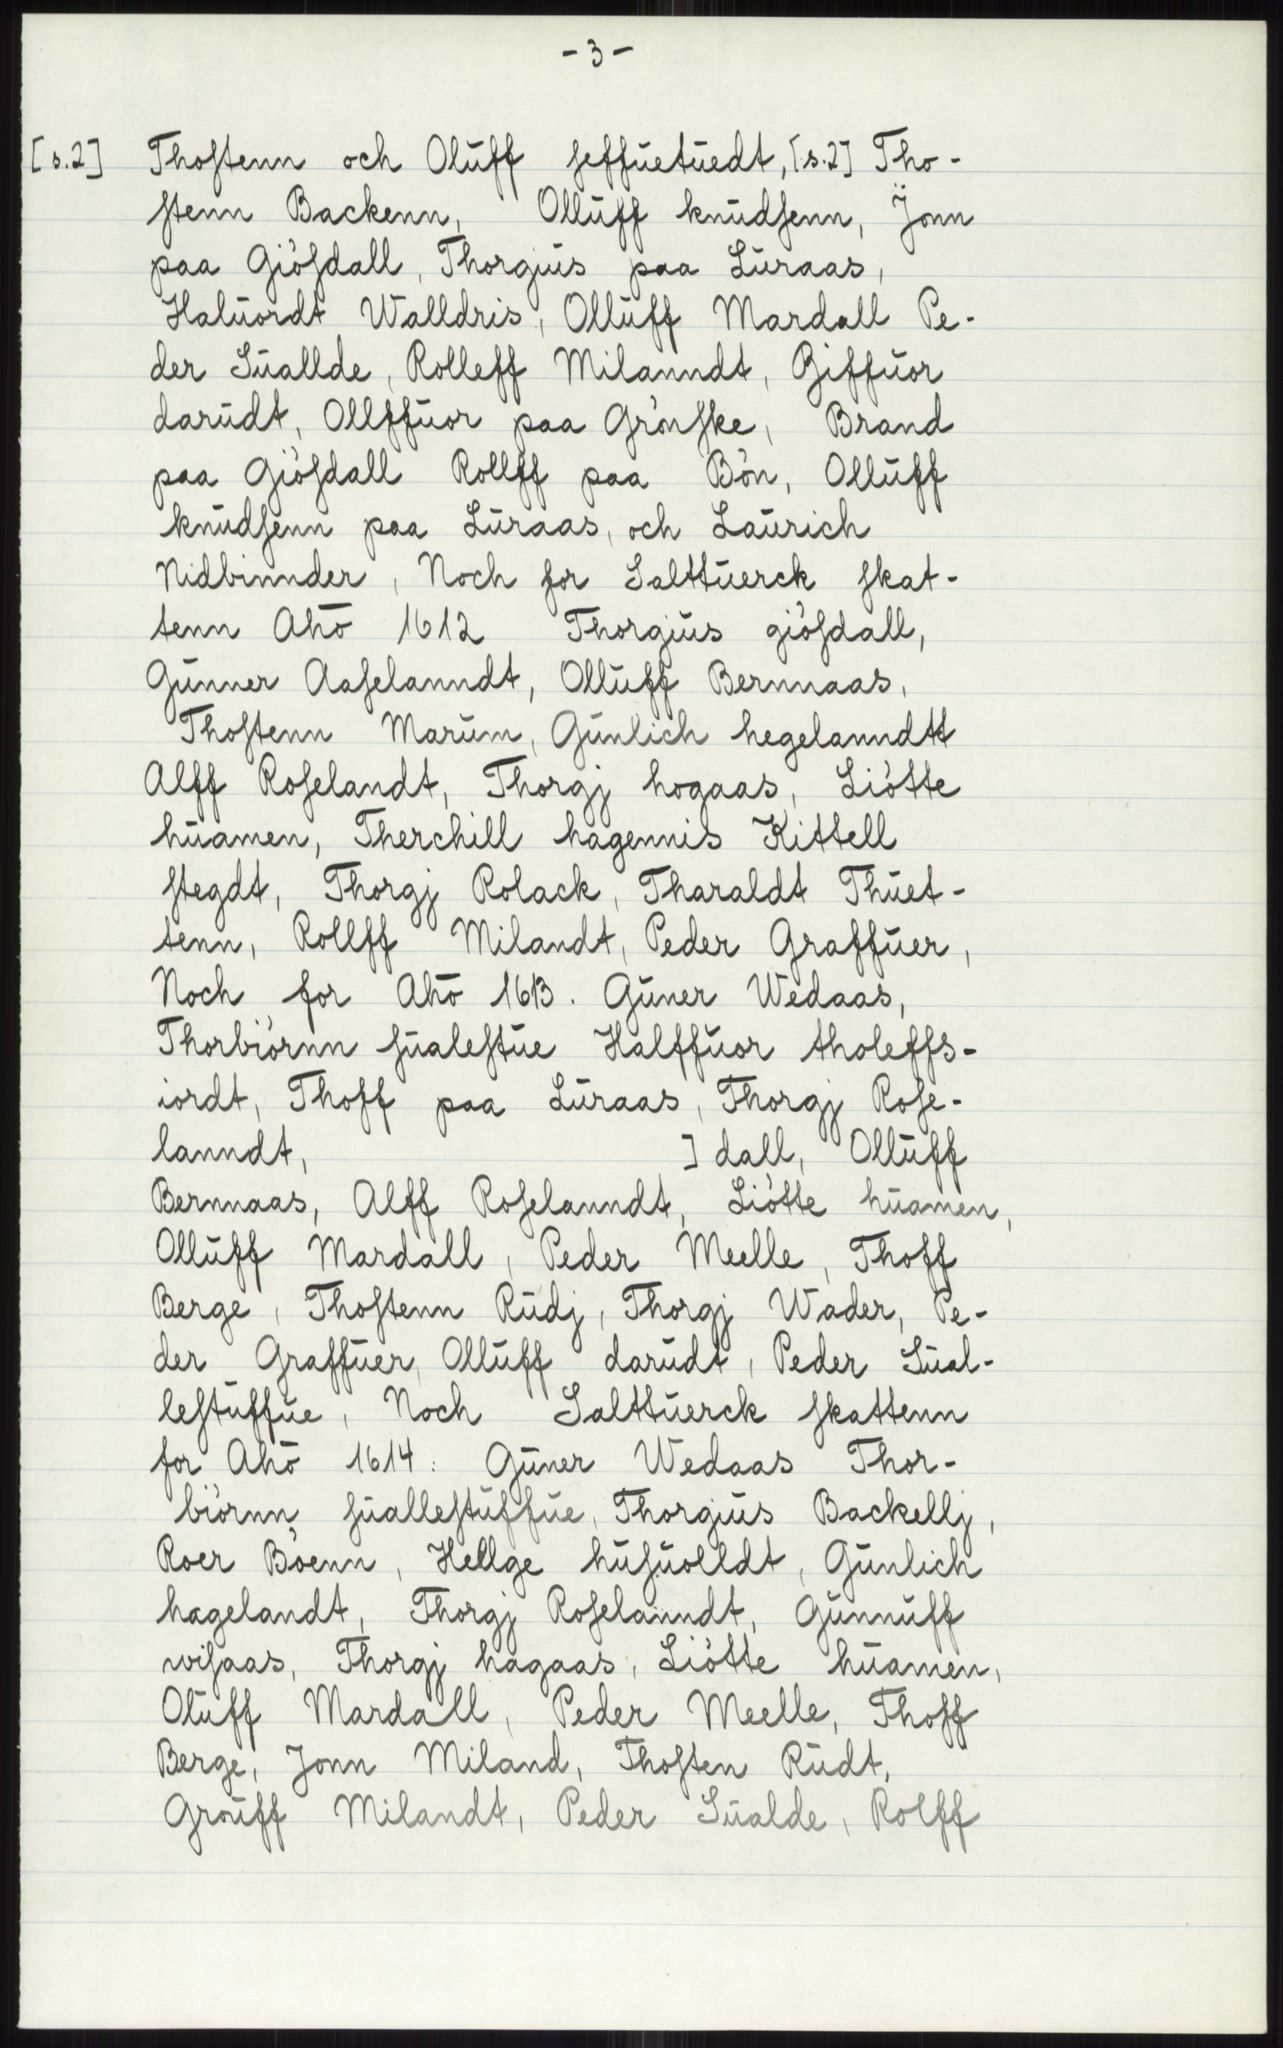 - 3 -
[s.2] Thostenn och Olüff seffüetüedt, [s.2] Tho-
stenn Backenn, Ollüff knüdsenn, Jonn
paa Giösdall, Thorgius paa Lüraas,
Halüordt Walldris, Ollüff Mardall Pe-
der Süallde, Rolleff Milanndt, Giffüor
darüdt, Ollffüor paa Grönske, Brand
paa Giösdall Rollff paa Bön, Ollüff
knüdsenn paa Lüraas, och Laürich
Nidbinnder, Noch for Salttüerck skat-
tenn Ahō 1612 Thorgiüs giösdall,
Günner Aaselanndt, Ollüff Bernnaas,
Thostenn Marüm, Günlich hegelanndtt
Alff Roselandt, Thorgj hogaas, Liötte
hüamen, Therchill hagennis Kittell
stegdt, Thorgj Rolack, Tharaldt Thüet-
tenn, Rollff Milandt, Peder Graffüer,
Noch for Ahō 1613. Güner Wedaas,
Thorbiörnn süalestüe Halffüor tholeffs-
iordt, Thoff paa Lüraas, Thorgj Rose-
lanndt, ] dall, Ollüff
Bernnaas, Alff Roselanndt, Liötte hüamen,
Ollüff Mardall, Peder Meelle, Thoff
Berge, Thostenn Rüdj, Thorgj Wader, Pe-
der Graffüer, Ollüff darüdt, Peder Süal-
lestüffüe, Noch Salttüerck skattenn
for Ahō 1614: Güner Wedaas Thor-
biörnn süallestüffüe, Thorgiüs Backellj,
Roer Böenn, Hellge hüsüolldt, Günlich
hagelandt, Thorgj Roselanndt, Günnüff
wisaas, Thorgj hagaas, Liötte hüamen,
Olüff Mardall, Peder Meelle, Thoff
Berge, Jonn Miland, Thosten Rüdt,
Groüff Milandt, Peder Süalde, Rolff